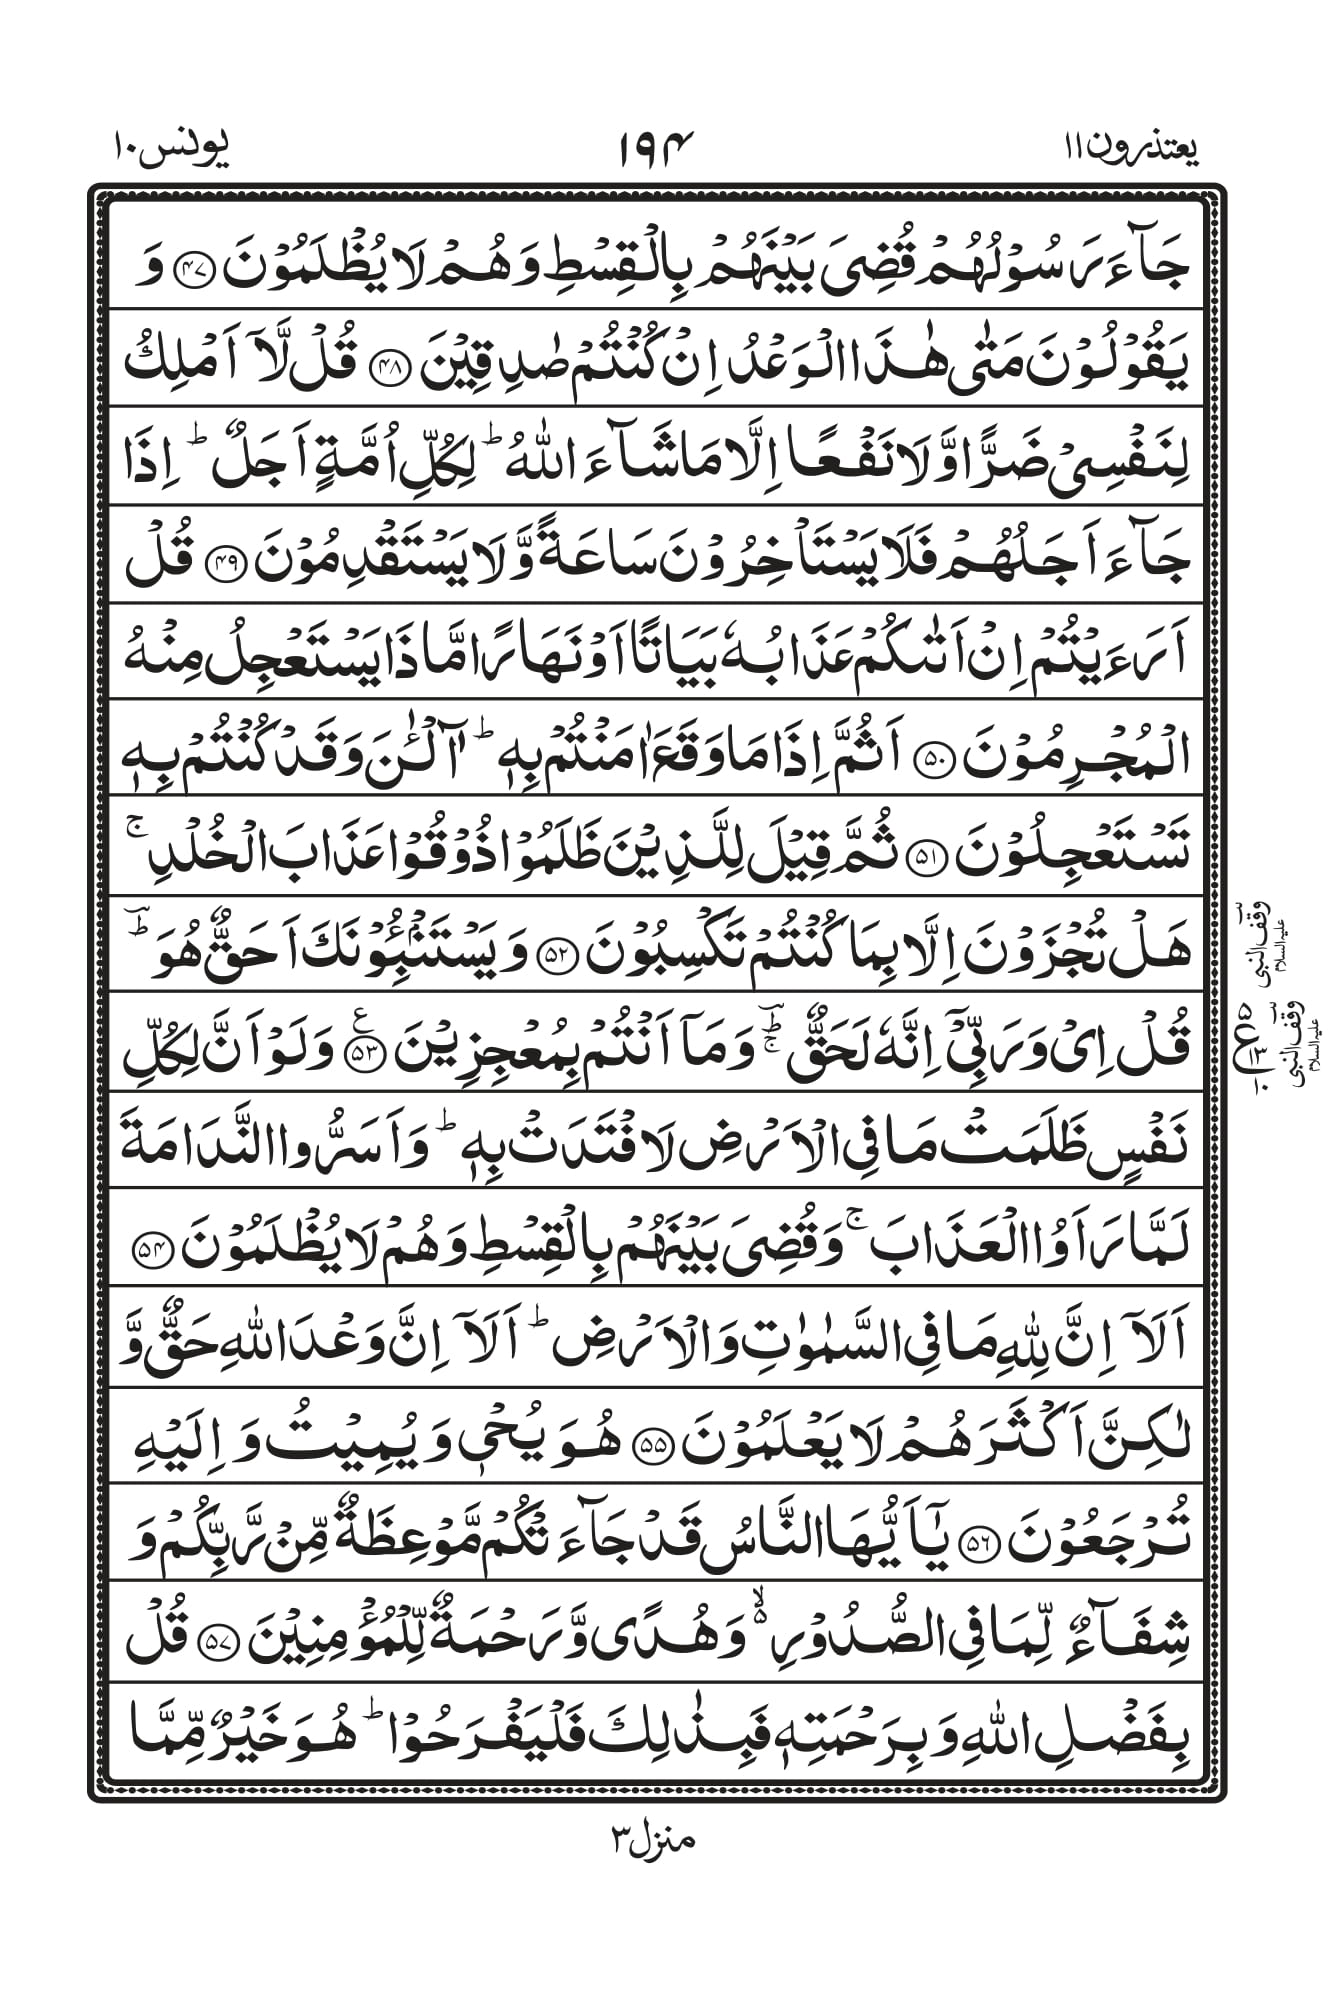 یعتذرون۱۱
۱۹۴
یونس۱۰
جَآءَ رَسُوۡلُهُمۡ قُضِىَ بَيۡنَهُمۡ بِالۡقِسۡطِ وَهُمۡ لَا يُظۡلَمُوۡنَ ﴿۴۷﴾ وَ
يَقُوۡلُوۡنَ مَتٰى هٰذَا الۡوَعۡدُ اِنۡ كُنۡتُمۡ صٰدِقِيۡنَ ﴿۴۸﴾ قُلۡ لَّاۤ اَمۡلِكُ
لِنَفۡسِىۡ ضَرًّا وَّلَا نَفۡعًا اِلَّا مَا شَآءَ اللّٰهُ ؕ لِكُلِّ اُمَّةٍ اَجَلٌ ؕ اِذَا
جَآءَ اَجَلُهُمۡ فَلَا يَسۡتَاۡخِرُوۡنَ سَاعَةً وَّلَا يَسۡتَقۡدِمُوۡنَ ﴿۴۹﴾ قُلۡ
اَرَءَيۡتُمۡ اِنۡ اَتٰٮكُمۡ عَذَابُهٗ بَيَاتًا اَوۡ نَهَارًا مَّاذَا يَسۡتَعۡجِلُ مِنۡهُ
الۡمُجۡرِمُوۡنَ ﴿۵۰﴾ اَثُمَّ اِذَا مَا وَقَعَ اٰمَنۡتُمۡ بِهٖ ؕ آٰلۡــٰٔنَ وَقَدۡ كُنۡتُمۡ بِهٖ
تَسۡتَعۡجِلُوۡنَ ﴿۵۱﴾ ثُمَّ قِيۡلَ لِلَّذِيۡنَ ظَلَمُوۡا ذُوۡقُوۡا عَذَابَ الۡخُلۡدِ ۚ
هَلۡ تُجۡزَوۡنَ اِلَّا بِمَا كُنۡتُمۡ تَكۡسِبُوۡنَ ﴿۵۲﴾ وَيَسۡتَنۡۢبِـُٔوۡنَكَ اَحَقٌّ هُوَ ؕ
وقف النبی علیہ السلام
قُلۡ اِىۡ وَرَبِّىۡۤ اِنَّهٗ لَحَقٌّ ؕۚ وَمَاۤ اَنۡتُمۡ بِمُعۡجِزِيۡنَ ﴿۵۳﴾ وَلَوۡ اَنَّ لِكُلِّ
وقف النبی علیہ السلام
نَفۡسٍ ظَلَمَتۡ مَا فِى الۡاَرۡضِ لَافۡتَدَتۡ بِهٖ ؕ وَاَسَرُّوا النَّدَامَةَ
لَمَّا رَاَوُا الۡعَذَابَ ۚ وَقُضِىَ بَيۡنَهُمۡ بِالۡقِسۡطِ وَهُمۡ لَا يُظۡلَمُوۡنَ ﴿۵۴﴾
اَلَاۤ اِنَّ لِلّٰهِ مَا فِى السَّمٰوٰتِ وَالۡاَرۡضِ ؕ اَلَاۤ اِنَّ وَعۡدَ اللّٰهِ حَقٌّ وَّ
لٰـكِنَّ اَكۡثَرَهُمۡ لَا يَعۡلَمُوۡنَ ﴿۵۵﴾ هُوَ يُحۡىٖ وَيُمِيۡتُ وَاِلَيۡهِ
تُرۡجَعُوۡنَ ﴿۵۶﴾ يٰۤاَيُّهَا النَّاسُ قَدۡ جَآءَتۡكُمۡ مَّوۡعِظَةٌ مِّنۡ رَّبِّكُمۡ وَ
شِفَآءٌ لِّمَا فِى الصُّدُوۡرِ ۙ۬ وَهُدًى وَّرَحۡمَةٌ لِّلۡمُؤۡمِنِيۡنَ ﴿۵۷﴾ قُلۡ
بِفَضۡلِ اللّٰهِ وَبِرَحۡمَتِهٖ فَبِذٰلِكَ فَلۡيَفۡرَحُوۡا ؕ هُوَ خَيۡرٌ مِّمَّا
منزل۳